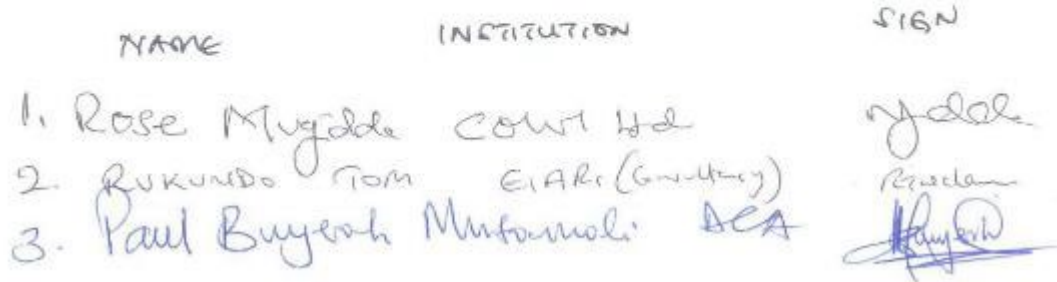 NAME INSTITUTION SIGN
1. Rose Mugidde COWI Ltd
2. RUKUNDO TOM EIARc (Consultancy)
3. Paul Buyerah Musamali ACA